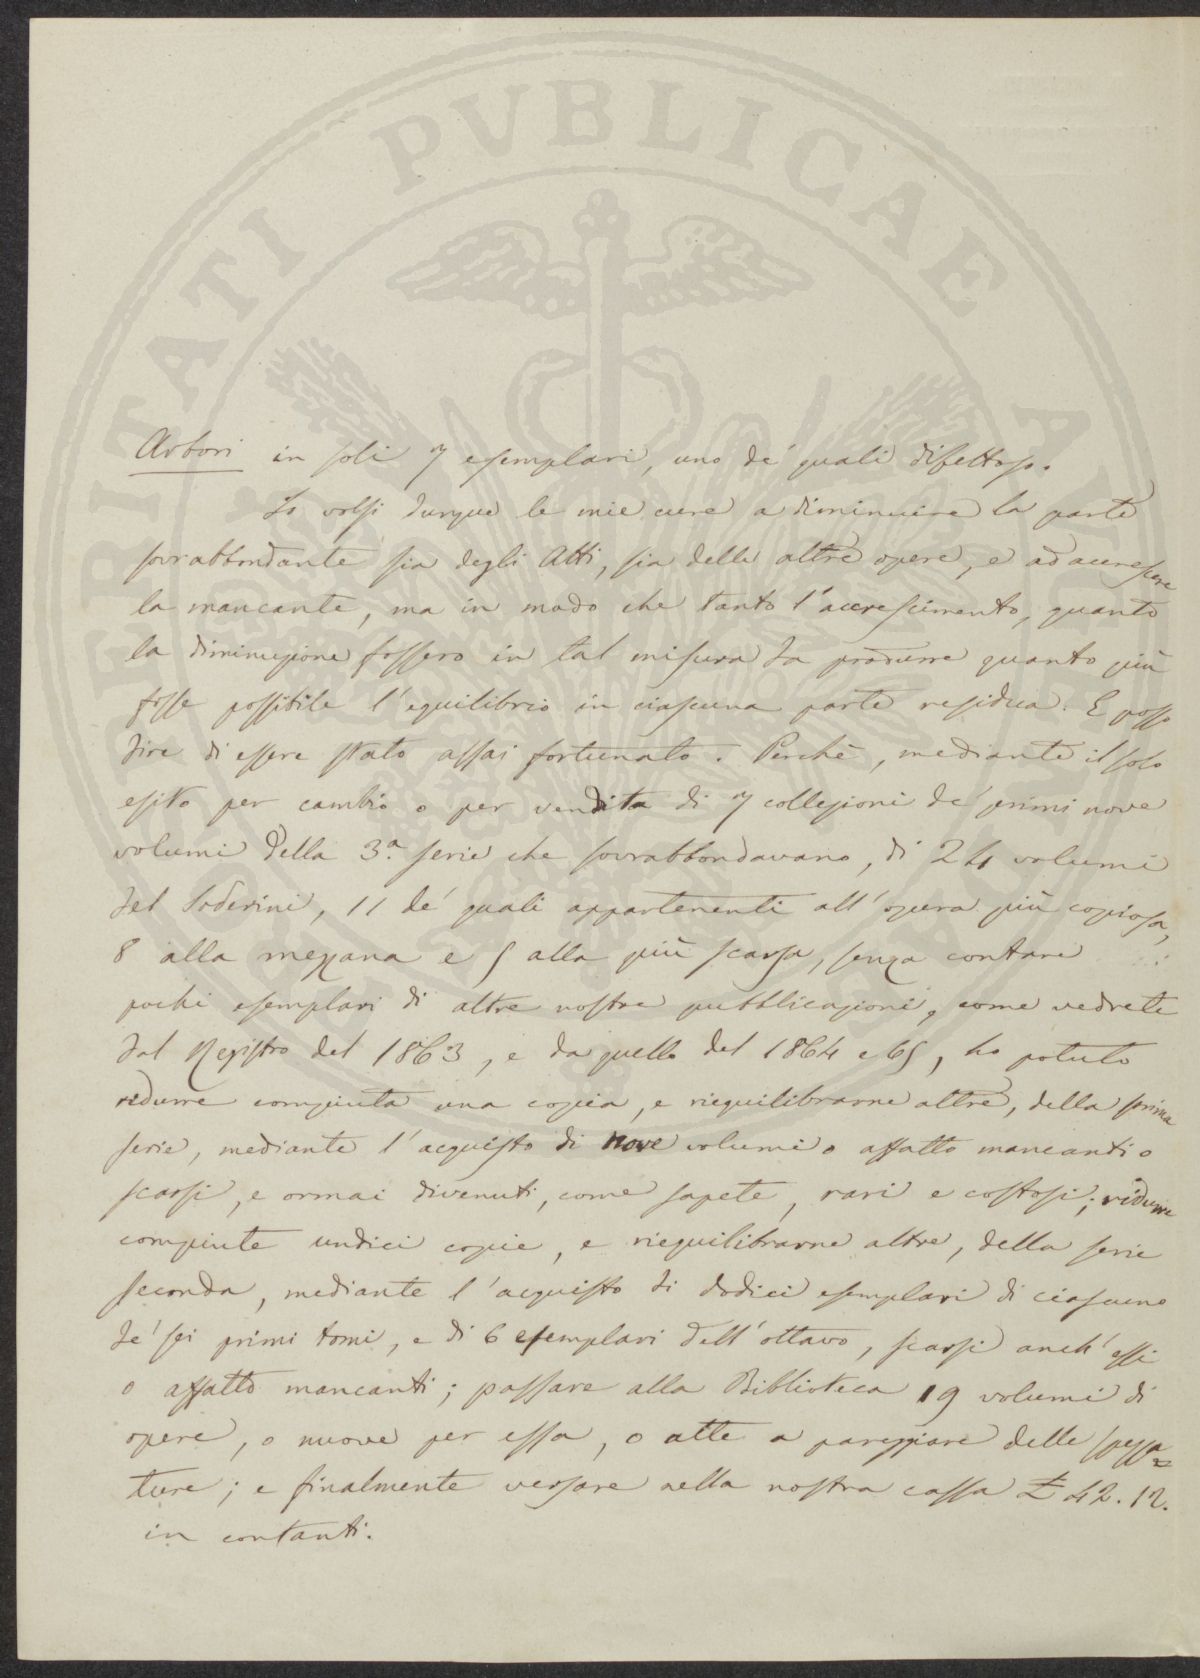 Arbori in soli 7 esemplari, uno de' quali difettoso.
Io volsi dunque le mie cure a diminuire la parte
sovrabbondante sia degli Atti, sia delle altre opere, e ad accrescere
la mancante, ma in modo che tanto l'accrescimento, quanto
la diminuzione fossero in tal misura da produrre quanto più
fosse possibile l'equilibrio in ciascuna parte residua. E posso
dire di essere stato assai fortunato. Perchè, mediante il solo
esito per cambio o per vendita di 7 collezioni de' primi nove
volumi della 3.a serie che sovrabbondavano, di 24 volumi
del Soderini, 11 de' quali appartenenti all'opera più copiosa,
8 alla mezzana e 5 alla più scarsa, senza contare
pochi esemplari di altre nostre pubblicazioni, come vedrete
dal Registro del 1863, e da quello del 1864 e 65, ho potuto
ridurre compiuta una copia, e riequilibrarne altre, della prima
serie, mediante l'acquisto di nove volumi o affatto mancanti o
scarsi, e ormai divenuti, come sapete, rari e costosi; ridurre
compiute undici copie, e riequilibrarne altre, della serie
seconda, mediante l'acquisto di dodici esemplari di ciascuno
de' sei primi tomi, e di 6 esemplari dell'ottavo, scarsi anch'essi
o affatto mancanti; passare alla Biblioteca 19 volumi di
opere, o nuove per essa, o atte a pareggiare delle spezza=
ture; e finalmente versare nella nostra cassa £ 42.12.
in contanti.
PROSPERITATI PVBLICAE AVGENDAE